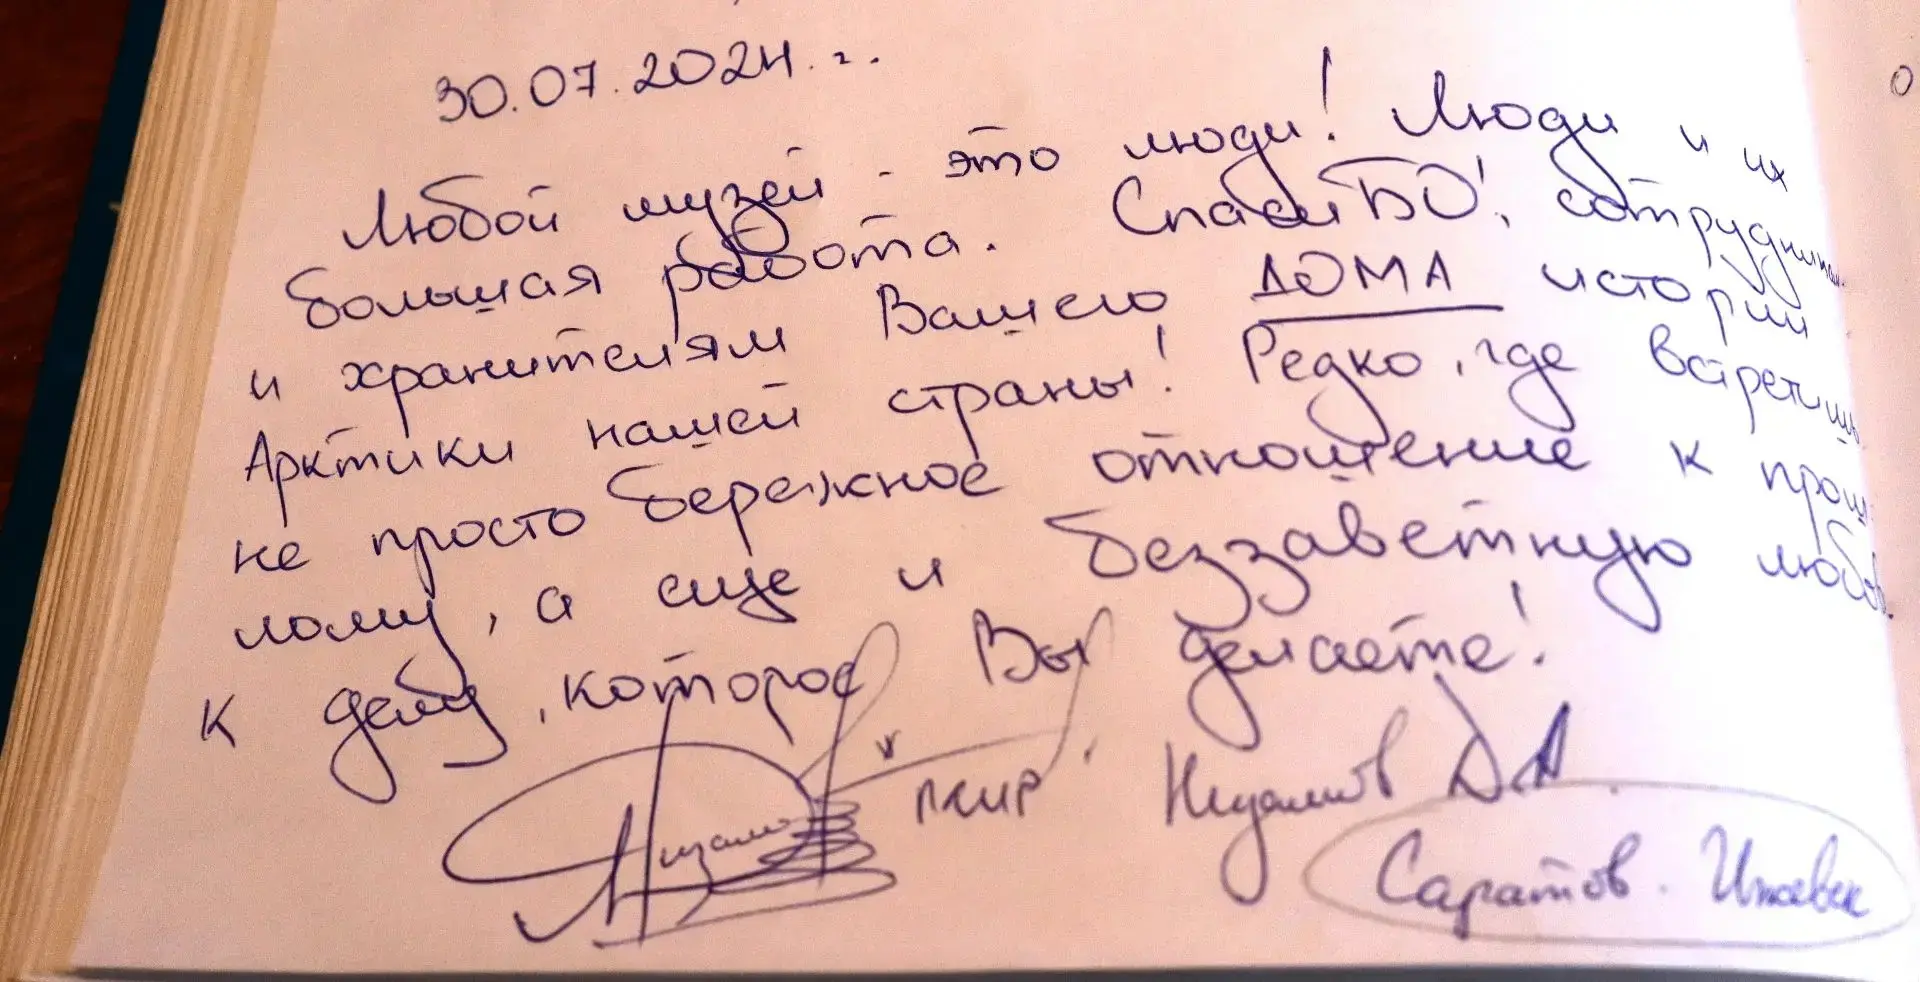 30.07.2024.г.
Любой музей - это люди! Люди и их
большая работа. СпасиБО!, сотрудникам
и хранителям Вашего ДОМА истории
Арктики нашей страны! Редко, где встретишь
не просто бережное отношение к прош-
лому, а еще и беззаветную любовь
к делу, которое Вы делаете!
Низамов Д.А.
Саратов. Ижевск